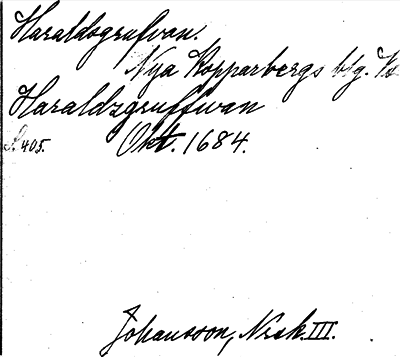 Haraldsgrufvan.
Nya Kopparbergs blg. Vs.
Haraldzgruffwan
S. 405. Okt. 1684.
Johansson, Norsk. III.